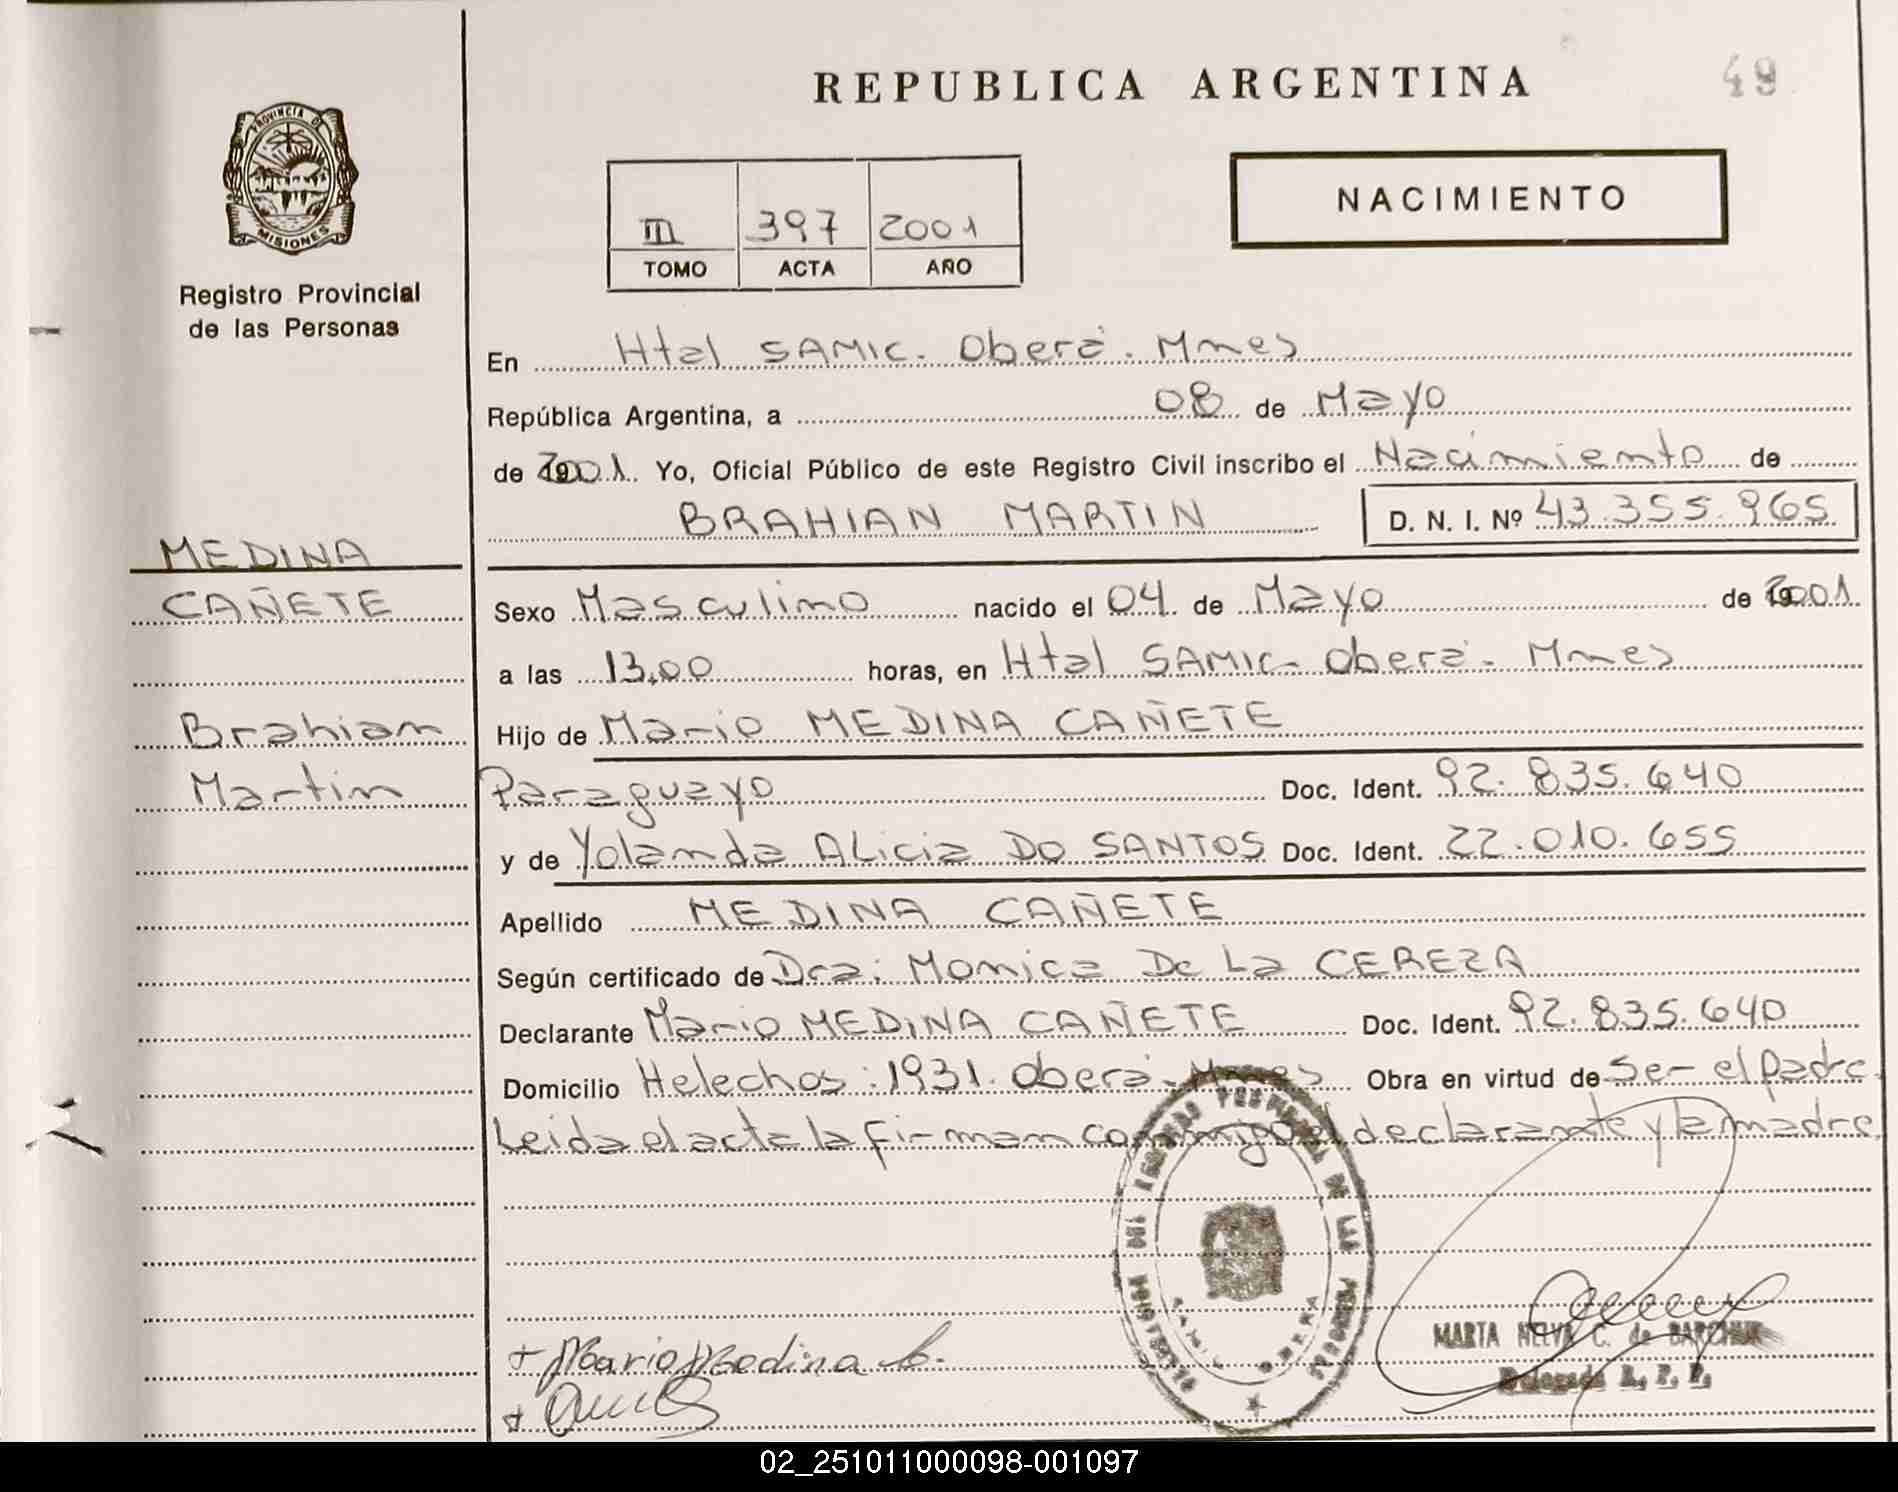 REPUBLICA ARGENTINA
49
PROVINCIA DE
MISIONES
Registro Provincial
de las Personas
III 397 2001
TOMO ACTA AÑO
NACIMIENTO
En Htal SAMIC. Oberá. Mnes
República Argentina, a 08 de Mayo
de 2001. Yo, Oficial Público de este Registro Civil inscribo el Nacimiento de
BRAHIAN MARTIN D. N. I. Nº 43.355.965
MEDINA
CAÑETE
Brahian
Martin
Sexo Masculino nacido el 04 de Mayo de 2001
a las 13,00 horas, en Htal SAMIC. Oberá. Mnes
Hijo de Mario MEDINA CAÑETE
Paraguayo Doc. Ident. 92.835.640
y de Yolanda ALicia DO SANTOS Doc. Ident. 22.010.655
Apellido MEDINA CAÑETE
Según certificado de Dra: Monica De La CEREZA
Declarante Mario MEDINA CAÑETE Doc. Ident. 92.835.640
Domicilio Helechos: 1931. Oberá. Mnes Obra en virtud de Ser el padre.
Leida el acta la firman conmigo el declarante y la madre
+ Mario Medina C.
MARTA NELVA C. de
Delegada R. P. P.
02_251011000098-001097